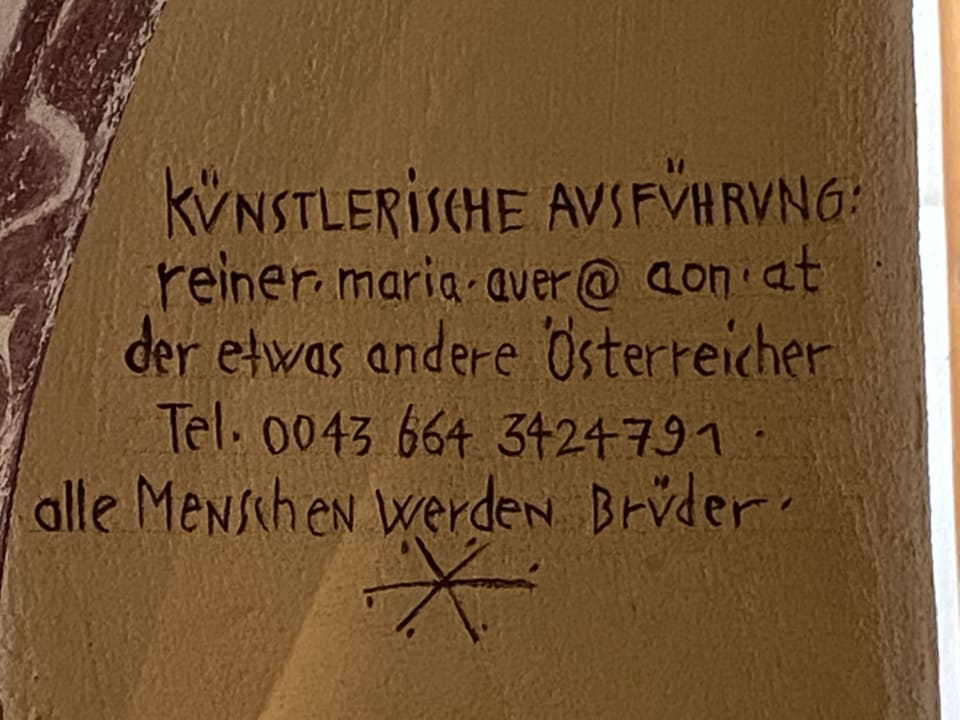 KÜNSTLERISCHE AUSFÜHRUNG:
reiner.maria.auer@aon.at
der etwas andere Österreicher
Tel. 0043 664 3424791.
alle Menschen werden Brüder.